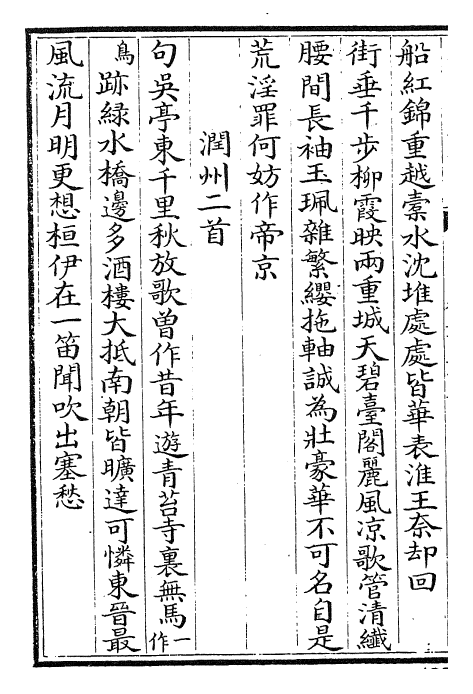 船紅錦重越橐水沈堆處處皆華表淮王奈却回
街垂千步栁霞映兩重城天碧臺閣麗風凉歌管清纖
腰間長袖玉珮雜繁纓拖軸誠為壯豪華不可名自是
荒淫罪何妨作帝京
潤州二首
句吳亭東千里秋放歌曽作昔年遊青苔寺裏無馬一作
鳥跡緑水橋邊多酒樓大抵南朝皆曠達可憐東晉最
風流月明更想桓伊在一笛聞吹出塞愁